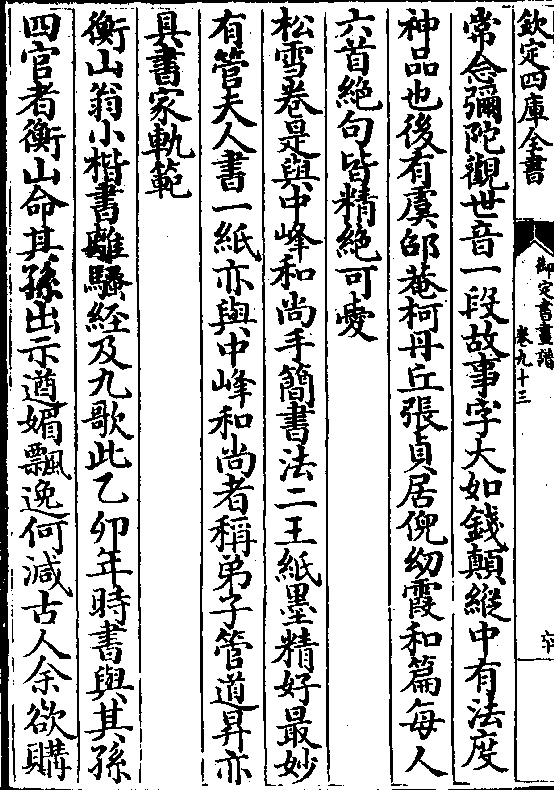 欽定四庫全書
御定書畫譜
卷九十三
常念彌陀觀世音一段故事字大如錢顛縱中有法度
神品也後有虞邵菴柯丹丘張貞居倪幼霞和篇每人
六首絕句皆精絕可愛
松雪卷是與中峰和尚手簡書法二王紙墨精好最妙
有管夫人書一紙亦與中峰和尚者稱弟子管道昇亦
具書家軌範
衡山翁小楷書離騷經及九歌此乙卯年時書與其孫
四官者衡山命其孫出示遒媚飄逸何減古人余欲購